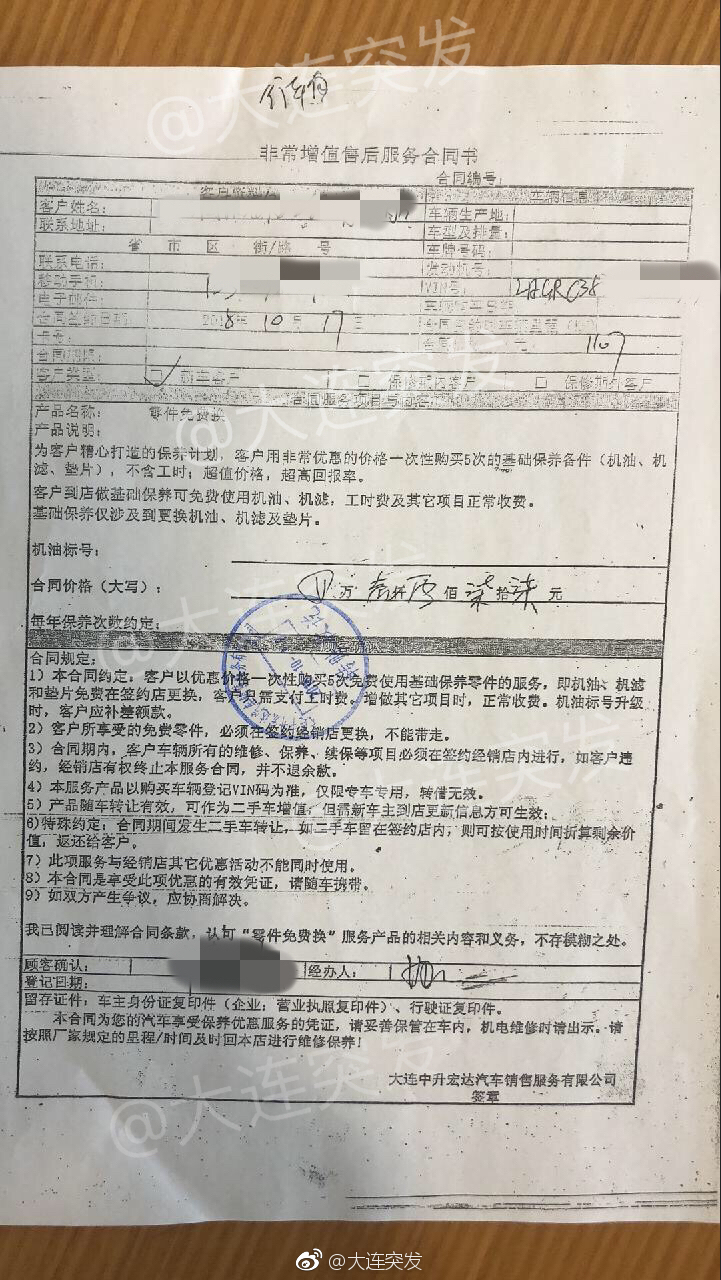 @大连突发
非常增值售后服务合同书
合同编号:
客户资料 车辆信息
客户姓名: 车辆生产地:
联系地址: 车型及排量:
省 市 区 街/路 号 车牌号码:
联系电话: 发动机号:
移动手机: VIN号:
电子邮件:
合同签约日期: 2018年10月17日
卡号:
合同期限:
客户类型: ☑ 新车客户 □ 保修期内客户 □ 保修期外客户
合同服务项目与内容
产品名称: 零件免费换
产品说明:
为客户精心打造的保养计划,客户用非常优惠的价格一次性购买5次的基础保养各件(机油、机
滤、垫片),不含工时;超值价格,超高回报率。
客户到店做基础保养可免费使用机油、机滤,工时费及其它项目正常收费。
基础保养仅涉及到更换机油、机滤及垫片。
机油标号:
合同价格(大写): 万 仟 佰 柒拾柒元
每年保养次数约定:
合同规定:
1)本合同约定:客户以优惠价格一次性购买5次免费使用基础保养零件的服务,即机油、机滤
和垫片免费在签约店更换,客户只需支付工时费。增做其它项目时,正常收费。机油标号升级
时,客户应补差额款。
2)客户所享受的免费零件,必须在签约经销店更换,不能带走。
3)合同期内,客户车辆所有的维修、保养、续保等项目必须在签约经销店内进行,如客户违
约,经销店有权终止本服务合同,并不退余款。
4)本服务产品以购买车辆登记VIN码为准,仅限专车专用,转借无效。
5)产品随车转让有效,可作为二手车增值,但需新车主到店更新信息方可生效;
6)特殊约定:合同期间发生二手车转让,如二手车留在签约店内,则可按使用时间折算剩余价
值,返还给客户。
7)此项服务与经销店其它优惠活动不能同时使用。
8)本合同是享受此项优惠的有效凭证,请随车携带。
9)如双方产生争议,应协商解决。
我已阅读并理解合同条款,认可“零件免费换”服务产品的相关内容和义务,不存模糊之处。
顾客确认: 经办人:
登记日期:
留存证件:车主身份证复印件(企业:营业执照复印件)、行驶证复印件。
本合同为您的汽车享受保养优惠服务的凭证,请妥善保管在车内,机电维修时请出示。请
按照厂家规定的里程/时间及时回本店进行维修保养!
大连中升宏达汽车销售服务有限公司
签章
@大连突发
@大连突发